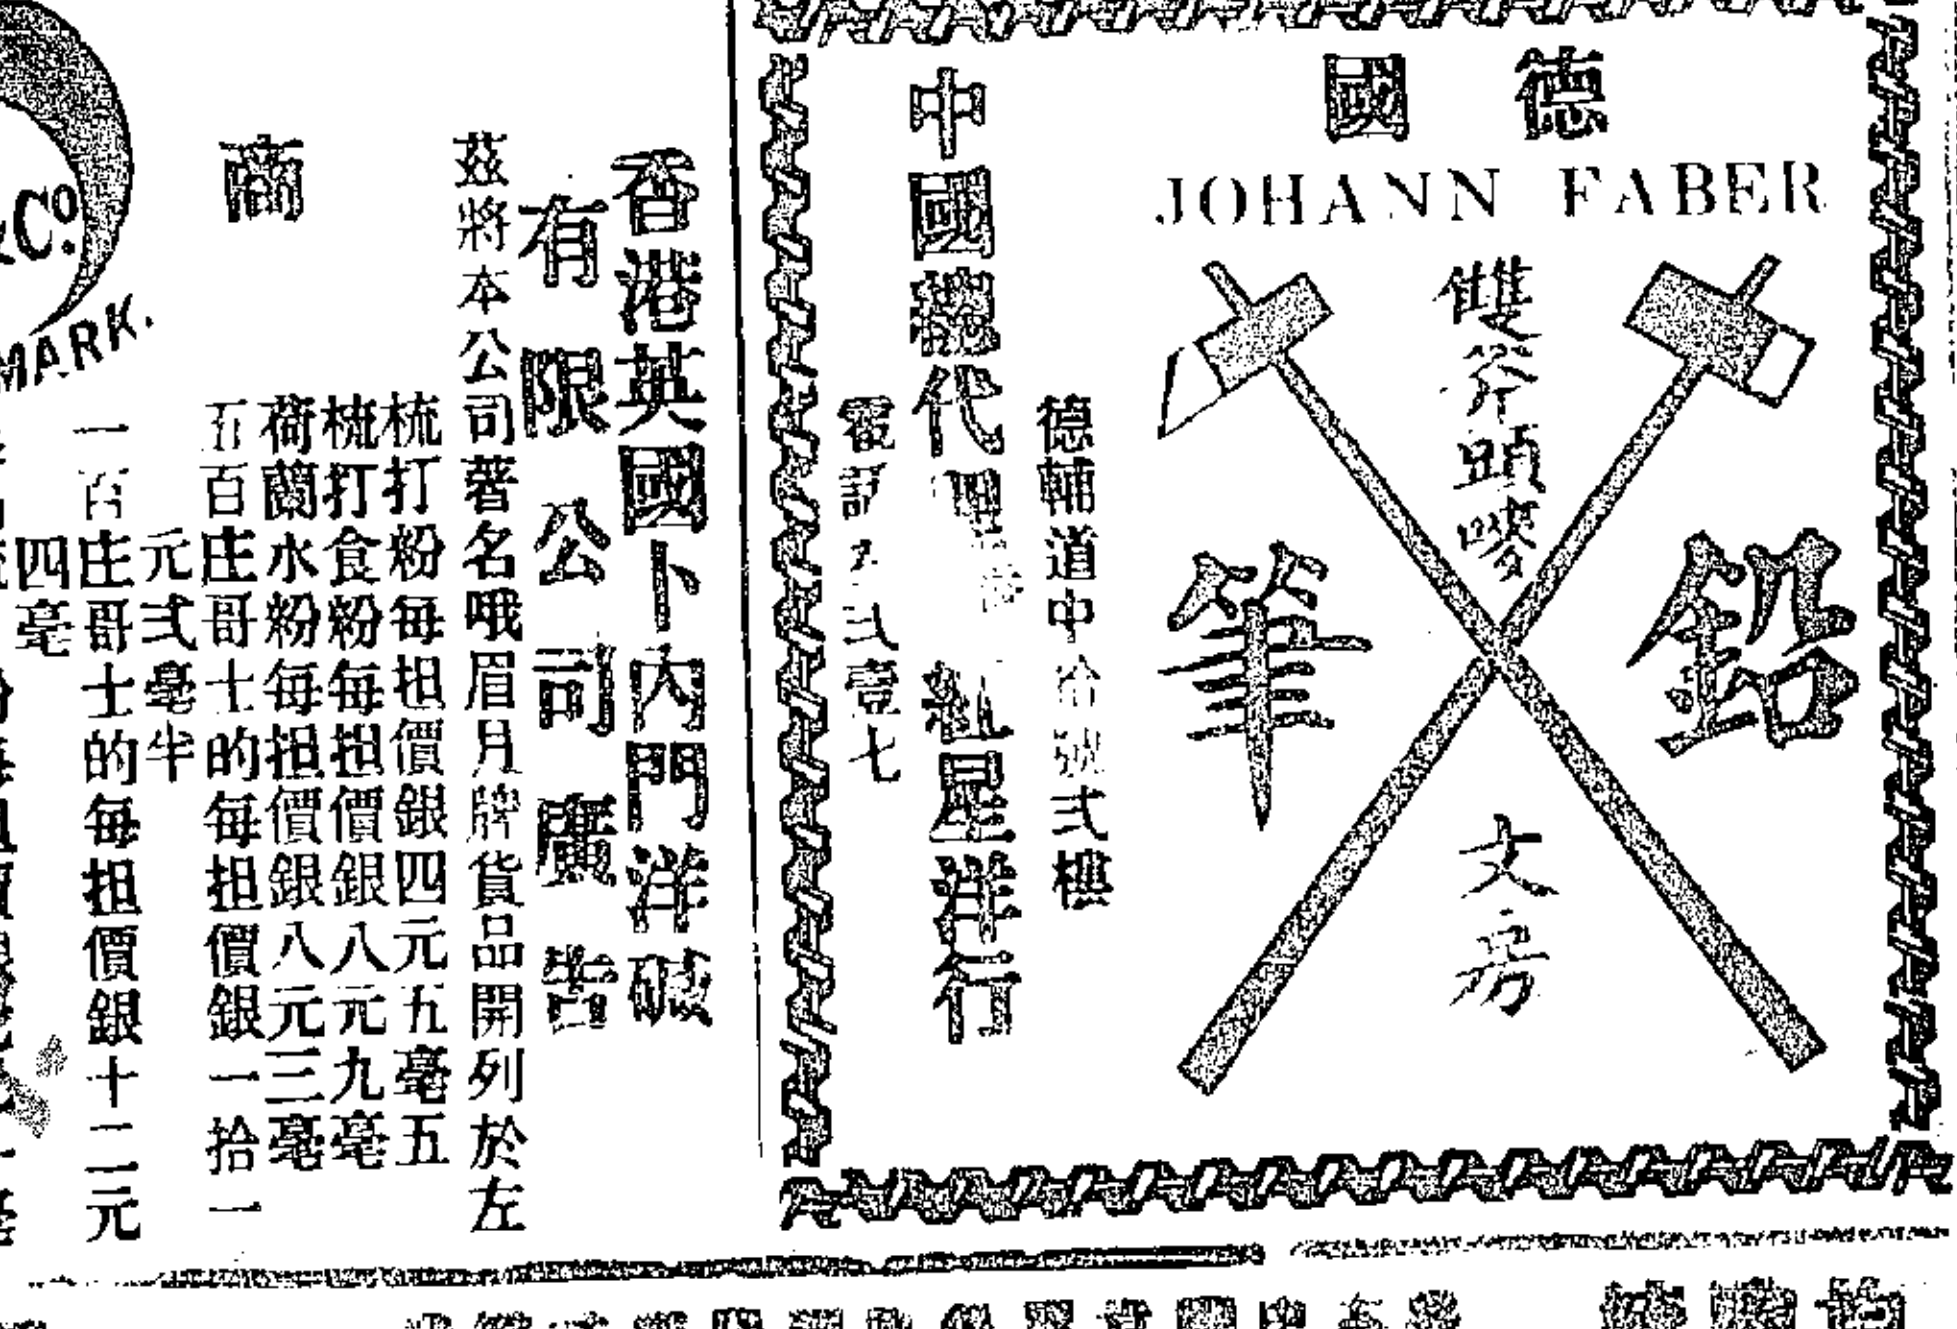 德國
JOHANN FABER
雙斧頭嘜
鉛筆
文房
德輔道中拾號弍樓
中國總代理
紅星洋行
電話
弍壹七
香港英國卜內門洋碱
有限公司廣告
茲將本公司著名哦眉月牌貨品開列於左
梳打粉每担價銀四元五毫五
梳打食粉每担價銀八元九毫
荷蘭水粉每担價銀八元三毫
五百庄哥士的每担價銀一拾一
元弍毫半
一百庄哥士的每担價銀十二元
四毫
商
Co.
MARK.